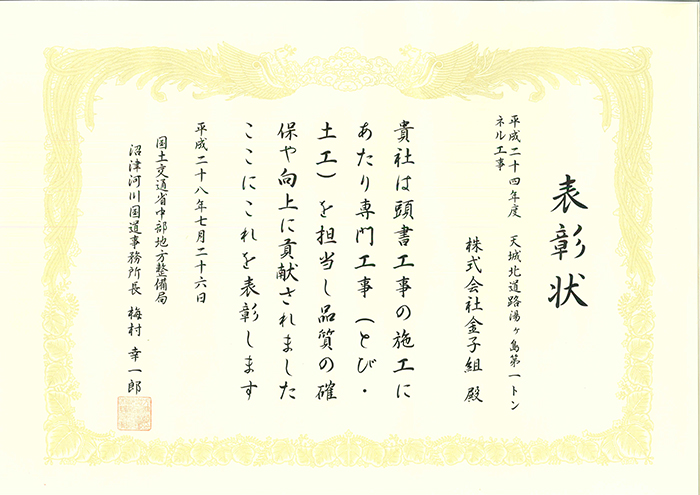 表彰状
平成二十四年度 天城北道路湯ヶ島第一トン
ネル工事
株式会社金子組 殿
貴社は頭書工事の施工に
あたり専門工事（とび・
土工）を担当し品質の確
保や向上に貢献されました
ここにこれを表彰します
平成二十八年七月二十六日
国土交通省中部地方整備局
沼津河川国道事務所長 梅村 幸一郎